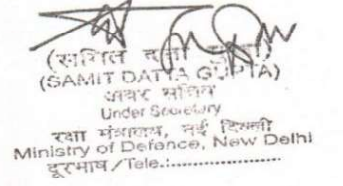 (SAMIT DATTA GUPTA)
अवर सचिव
Under Secretary
रक्षा मंत्रालय, नई दिल्ली
Ministry of Defence, New Delhi
दूरभाष/Tele.:....................